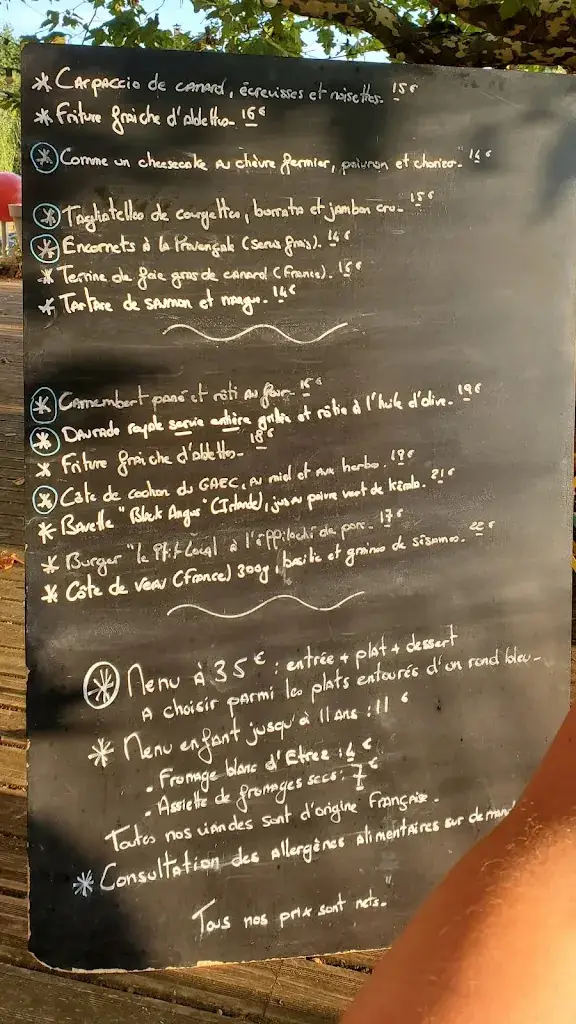 * Carpaccio de canard, écrevisses et noisettes. 15€
* Friture fraîche d'ablettes. 16€
* Comme un cheesecake au chèvre fermier, poivron et chorizo. 14€
* Tagliatelles de courgettes, burrata et jambon cru. 15€
* Encornets à la Provençale (servis frais). 14€
* Terrine de foie gras de canard (France). 15€
* Tartare de saumon et mangue. 14€
* Camembert pané et rôti au four. 15€
* Daurade royale servie entière grillée et rôtie à l'huile d'olive. 19€
* Friture fraîche d'ablettes. 18€
* Côte de cochon du GAEC, au miel et aux herbes. 19€
* Bavette "Black Angus" (Irlande), jus au poivre vert de 21€
* Burger "le Ptit Local à l'effiloché de porc. 17€
* Côte de veau (France) 300g, basilic et graines de sésames. 22€
* Menu à 35€ : entrée + plat + dessert
A choisir parmi les plats entourés d'un rond bleu.
* Menu enfant jusqu'à 11 ans : 11€
- Fromage blanc d'Etrez : 4€
- Assiette de fromages secs : 7€
Toutes nos viandes sont d'origine Française.
* Consultation des allergènes alimentaires sur demand
Tous nos prix sont nets.